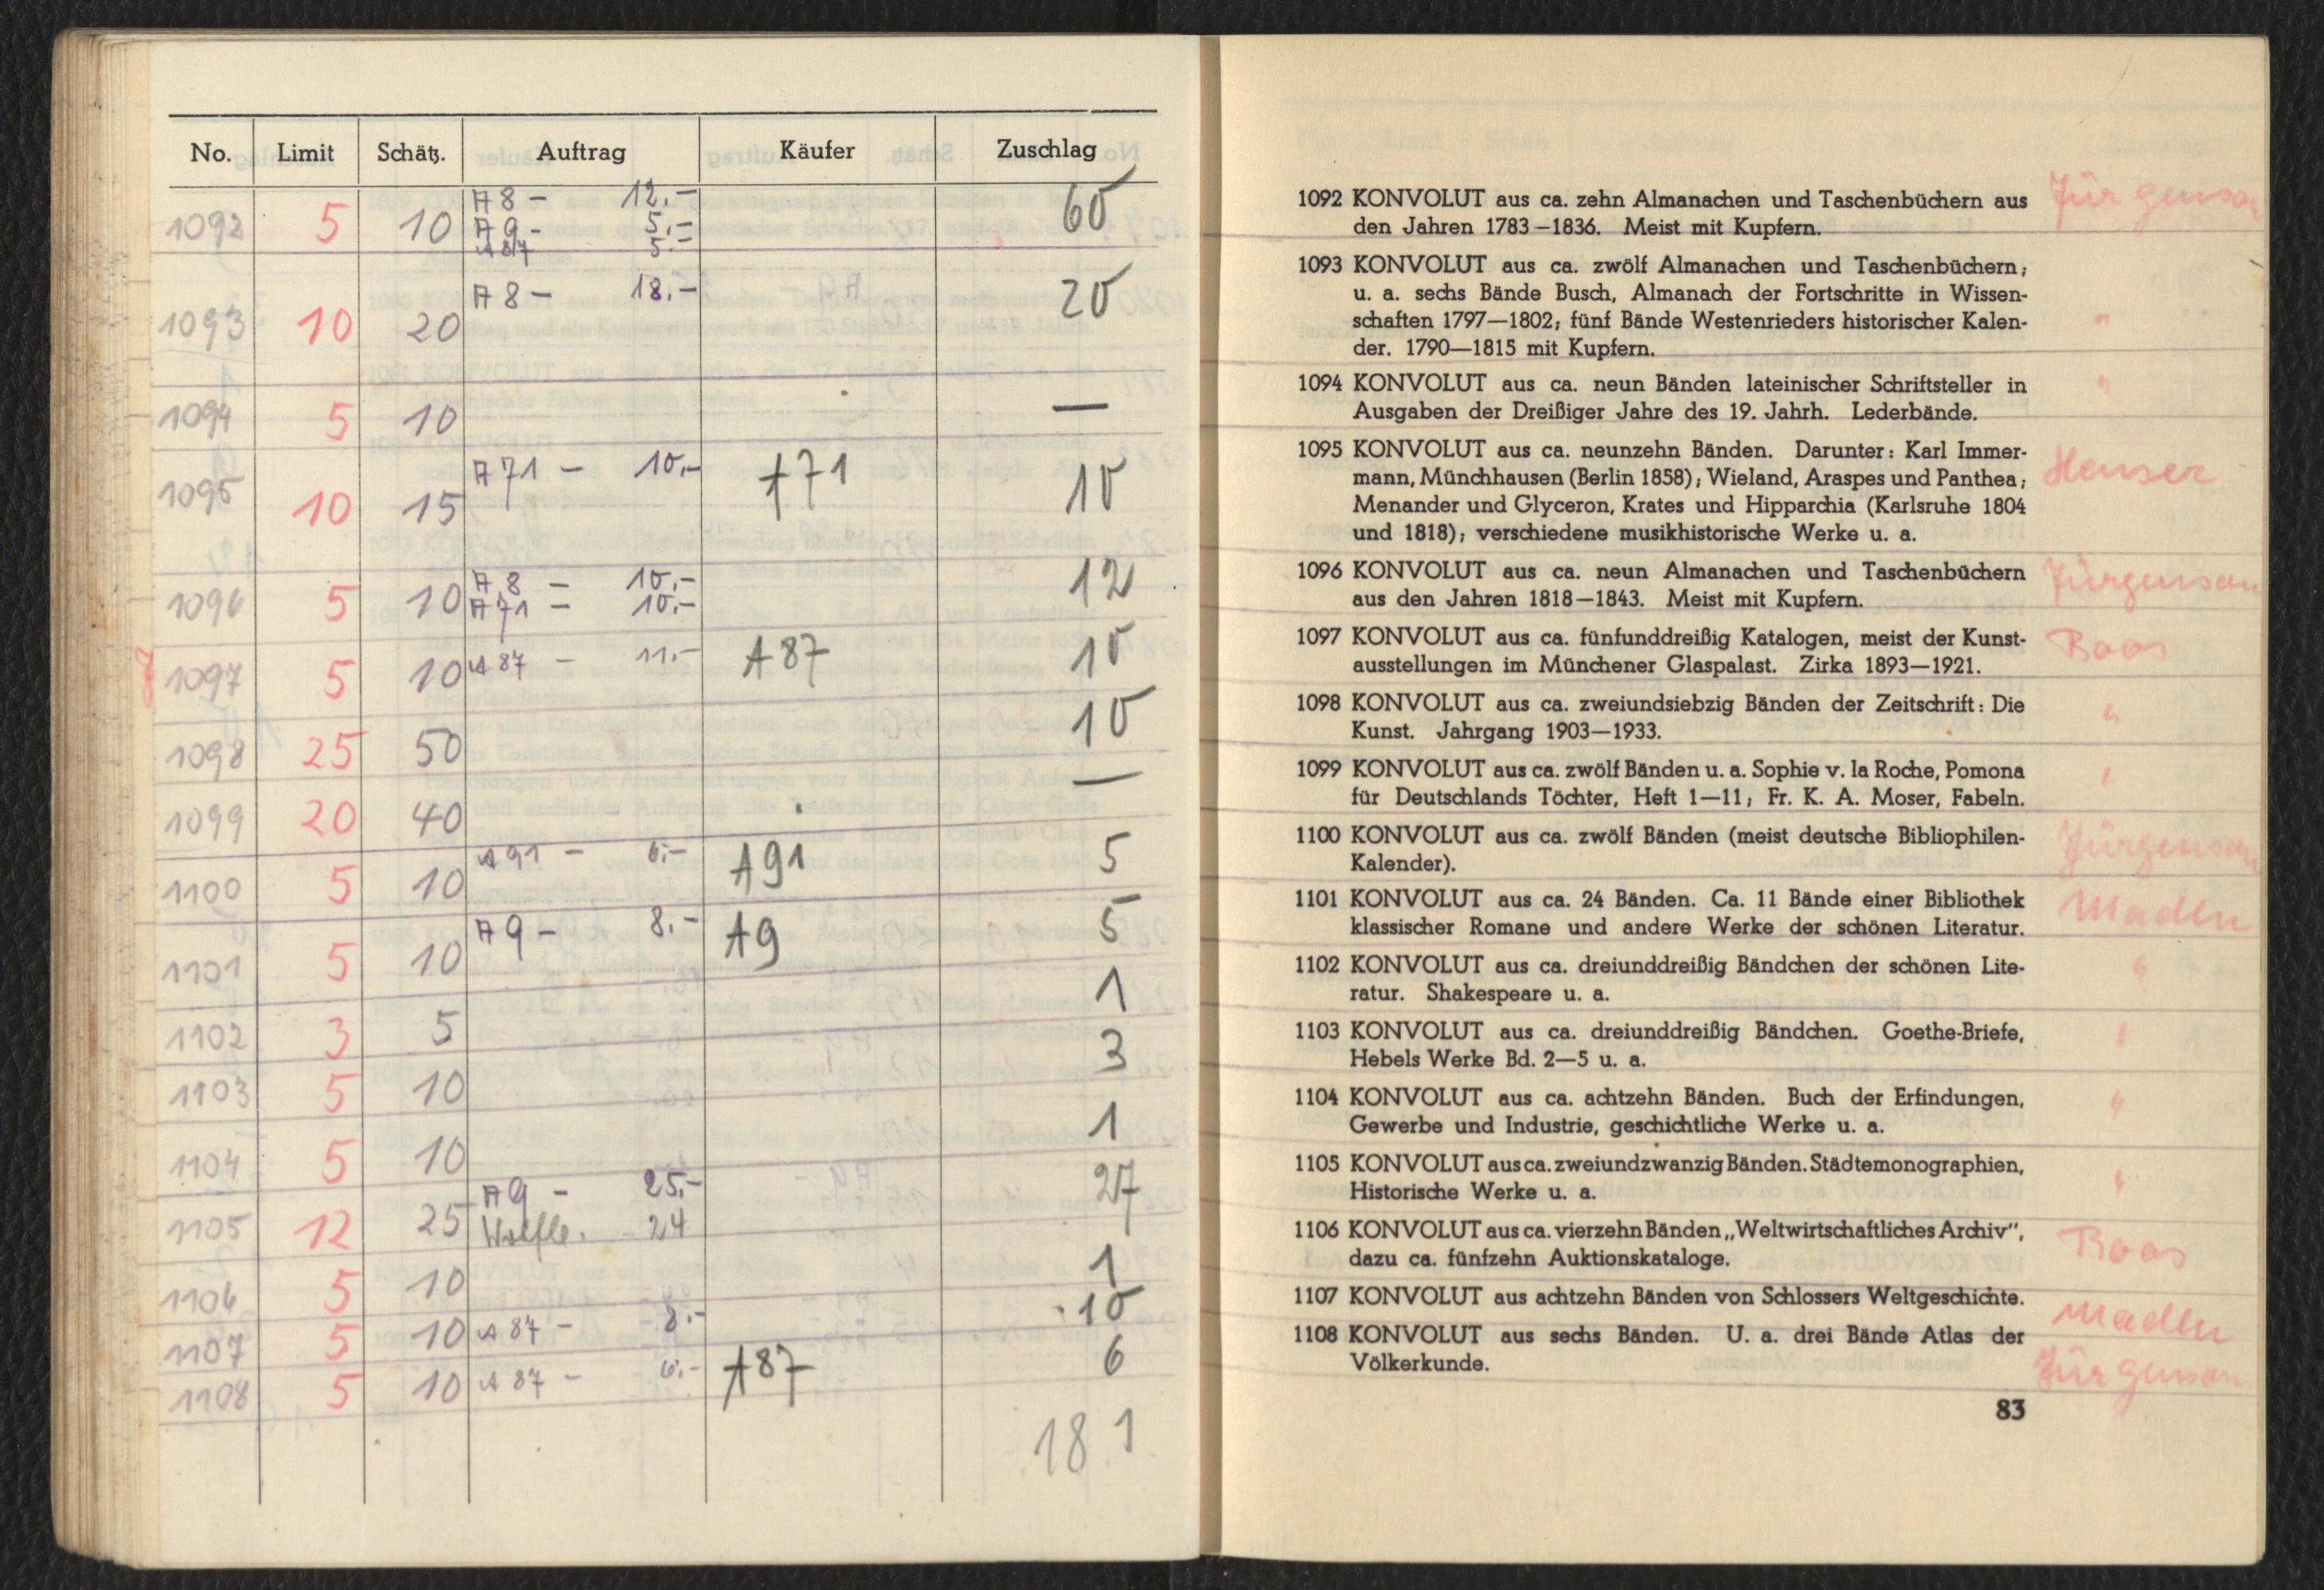 No. Limit Schätz. Auftrag Käufer Zuschlag
1092 5 10 A8 – 12.– 60
A9 – 5.–
A87 5.–
1093 10 20 A8 – 18.– 20
1094 5 10 —
1095 10 15 A71 – 10.– A71 10
1096 5 10 A8 – 10.– 12
A71 – 10.–
1097 5 10 A87 – 11.– A87 10
1098 25 50 10
1099 20 40 —
1100 5 10 A91 – 6.– A91 5
1101 5 10 A9 – 8.– A9 5
1102 3 5 1
1103 5 10 3
1104 5 10 1
1105 12 25 A9 – 25.– 27
24
1106 5 10 1
1107 5 10 A87 – 8.– 10
1108 5 10 A87 – 6.– A87 6
181
1092 KONVOLUT aus ca. zehn Almanachen und Taschenbüchern aus Jürgensen
den Jahren 1783–1836. Meist mit Kupfern.
1093 KONVOLUT aus ca. zwölf Almanachen und Taschenbüchern;
u. a. sechs Bände Busch, Almanach der Fortschritte in Wissen-
schaften 1797—1802; fünf Bände Westenrieders historischer Kalen- "
der. 1790—1815 mit Kupfern.
1094 KONVOLUT aus ca. neun Bänden lateinischer Schriftsteller in "
Ausgaben der Dreißiger Jahre des 19. Jahrh. Lederbände.
1095 KONVOLUT aus ca. neunzehn Bänden. Darunter: Karl Immer-
mann, Münchhausen (Berlin 1858); Wieland, Araspes und Panthea; Henser
Menander und Glyceron, Krates und Hipparchia (Karlsruhe 1804
und 1818); verschiedene musikhistorische Werke u. a.
1096 KONVOLUT aus ca. neun Almanachen und Taschenbüchern Jürgensen
aus den Jahren 1818–1843. Meist mit Kupfern.
1097 KONVOLUT aus ca. fünfunddreißig Katalogen, meist der Kunst- Roas
ausstellungen im Münchener Glaspalast. Zirka 1893—1921.
1098 KONVOLUT aus ca. zweiundsiebzig Bänden der Zeitschrift: Die "
Kunst. Jahrgang 1903—1933.
1099 KONVOLUT aus ca. zwölf Bänden u. a. Sophie v. la Roche, Pomona "
für Deutschlands Töchter, Heft 1—11; Fr. K. A. Moser, Fabeln.
1100 KONVOLUT aus ca. zwölf Bänden (meist deutsche Bibliophilen- Jürgensen
Kalender).
1101 KONVOLUT aus ca. 24 Bänden. Ca. 11 Bände einer Bibliothek Madlu
klassischer Romane und andere Werke der schönen Literatur.
1102 KONVOLUT aus ca. dreiunddreißig Bändchen der schönen Lite- "
ratur. Shakespeare u. a.
1103 KONVOLUT aus ca. dreiunddreißig Bändchen. Goethe-Briefe, "
Hebels Werke Bd. 2—5 u. a.
1104 KONVOLUT aus ca. achtzehn Bänden. Buch der Erfindungen, "
Gewerbe und Industrie, geschichtliche Werke u. a.
1105 KONVOLUT aus ca. zweiundzwanzig Bänden. Städtemonographien, "
Historische Werke u. a.
1106 KONVOLUT aus ca. vierzehn Bänden „Weltwirtschaftliches Archiv", Roas
dazu ca. fünfzehn Auktionskataloge.
1107 KONVOLUT aus achtzehn Bänden von Schlossers Weltgeschichte. Madlu
1108 KONVOLUT aus sechs Bänden. U. a. drei Bände Atlas der Jürgensen
Völkerkunde.
83